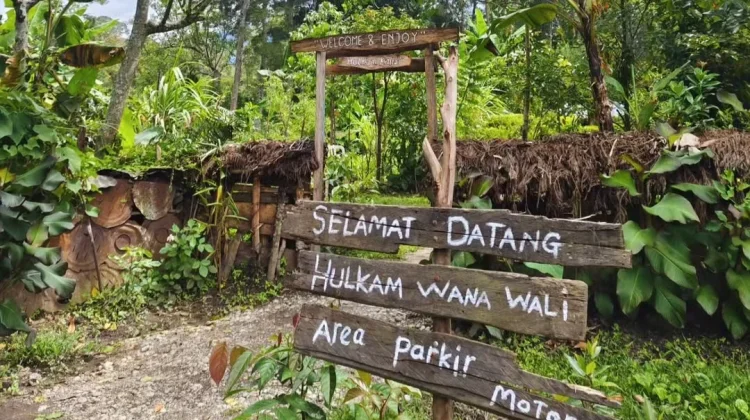 WELCOME & ENJOY"
SELAMAT DATANG
HULKAM WANA WALI
Area parkir
MOTOR